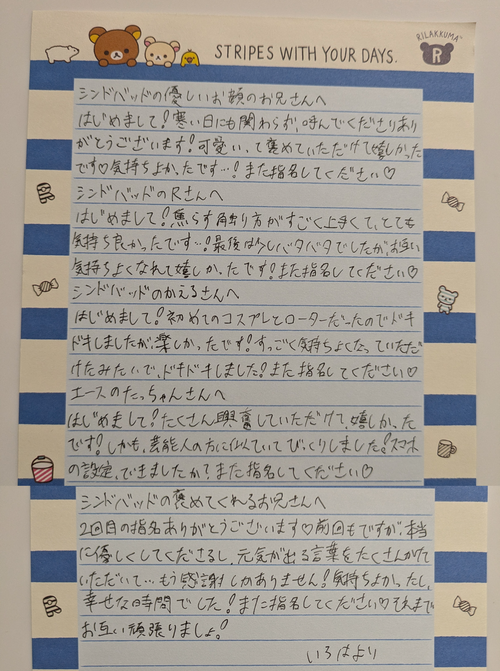 RILAKKUMA™
STRIPES WITH YOUR DAYS.
R
シンドバッドの優しいお顔のお兄さんへ
はじめまして!寒い日にも関わらず、呼んでくださりあり
がとうございます!可愛いって褒めていただけて嬉しかった
です♡気持ちよかったです…!また指名してください♡
シンドバッドのRさんへ
はじめまして!焦らす触り方がすごく上手くて、とても
気持ち良かったです…!最後は少しバタバタでしたが、お互い
気持ちよくなれて嬉しかったです!また指名してください♡
シンドバッドのかえるさんへ
はじめまして!初めてのコスプレとローターだったのでドキ
ドキしましたが、楽しかったです!すっごく気持ちよくなっていただ
けたみたいで、ドキドキしました!また指名してください♡
エースのたっちゃんさんへ
はじめまして!たくさん興奮していただけて、嬉しかった
です!しかも、芸能人の方に似ていてびっくりしました!スマホ
の設定、できましたか?また指名してください♡
シンドバッドの褒めてくれるお兄さんへ
2回目の指名ありがとうございます♡前回もですが、本当
に優しくしてくださるし、元気が出る言葉をたくさんかけて
いただいて…もう感謝しかありません!気持ちよかったし、
幸せな時間でした!また指名してください♡それまで
お互い頑張りましょ!
いろはより